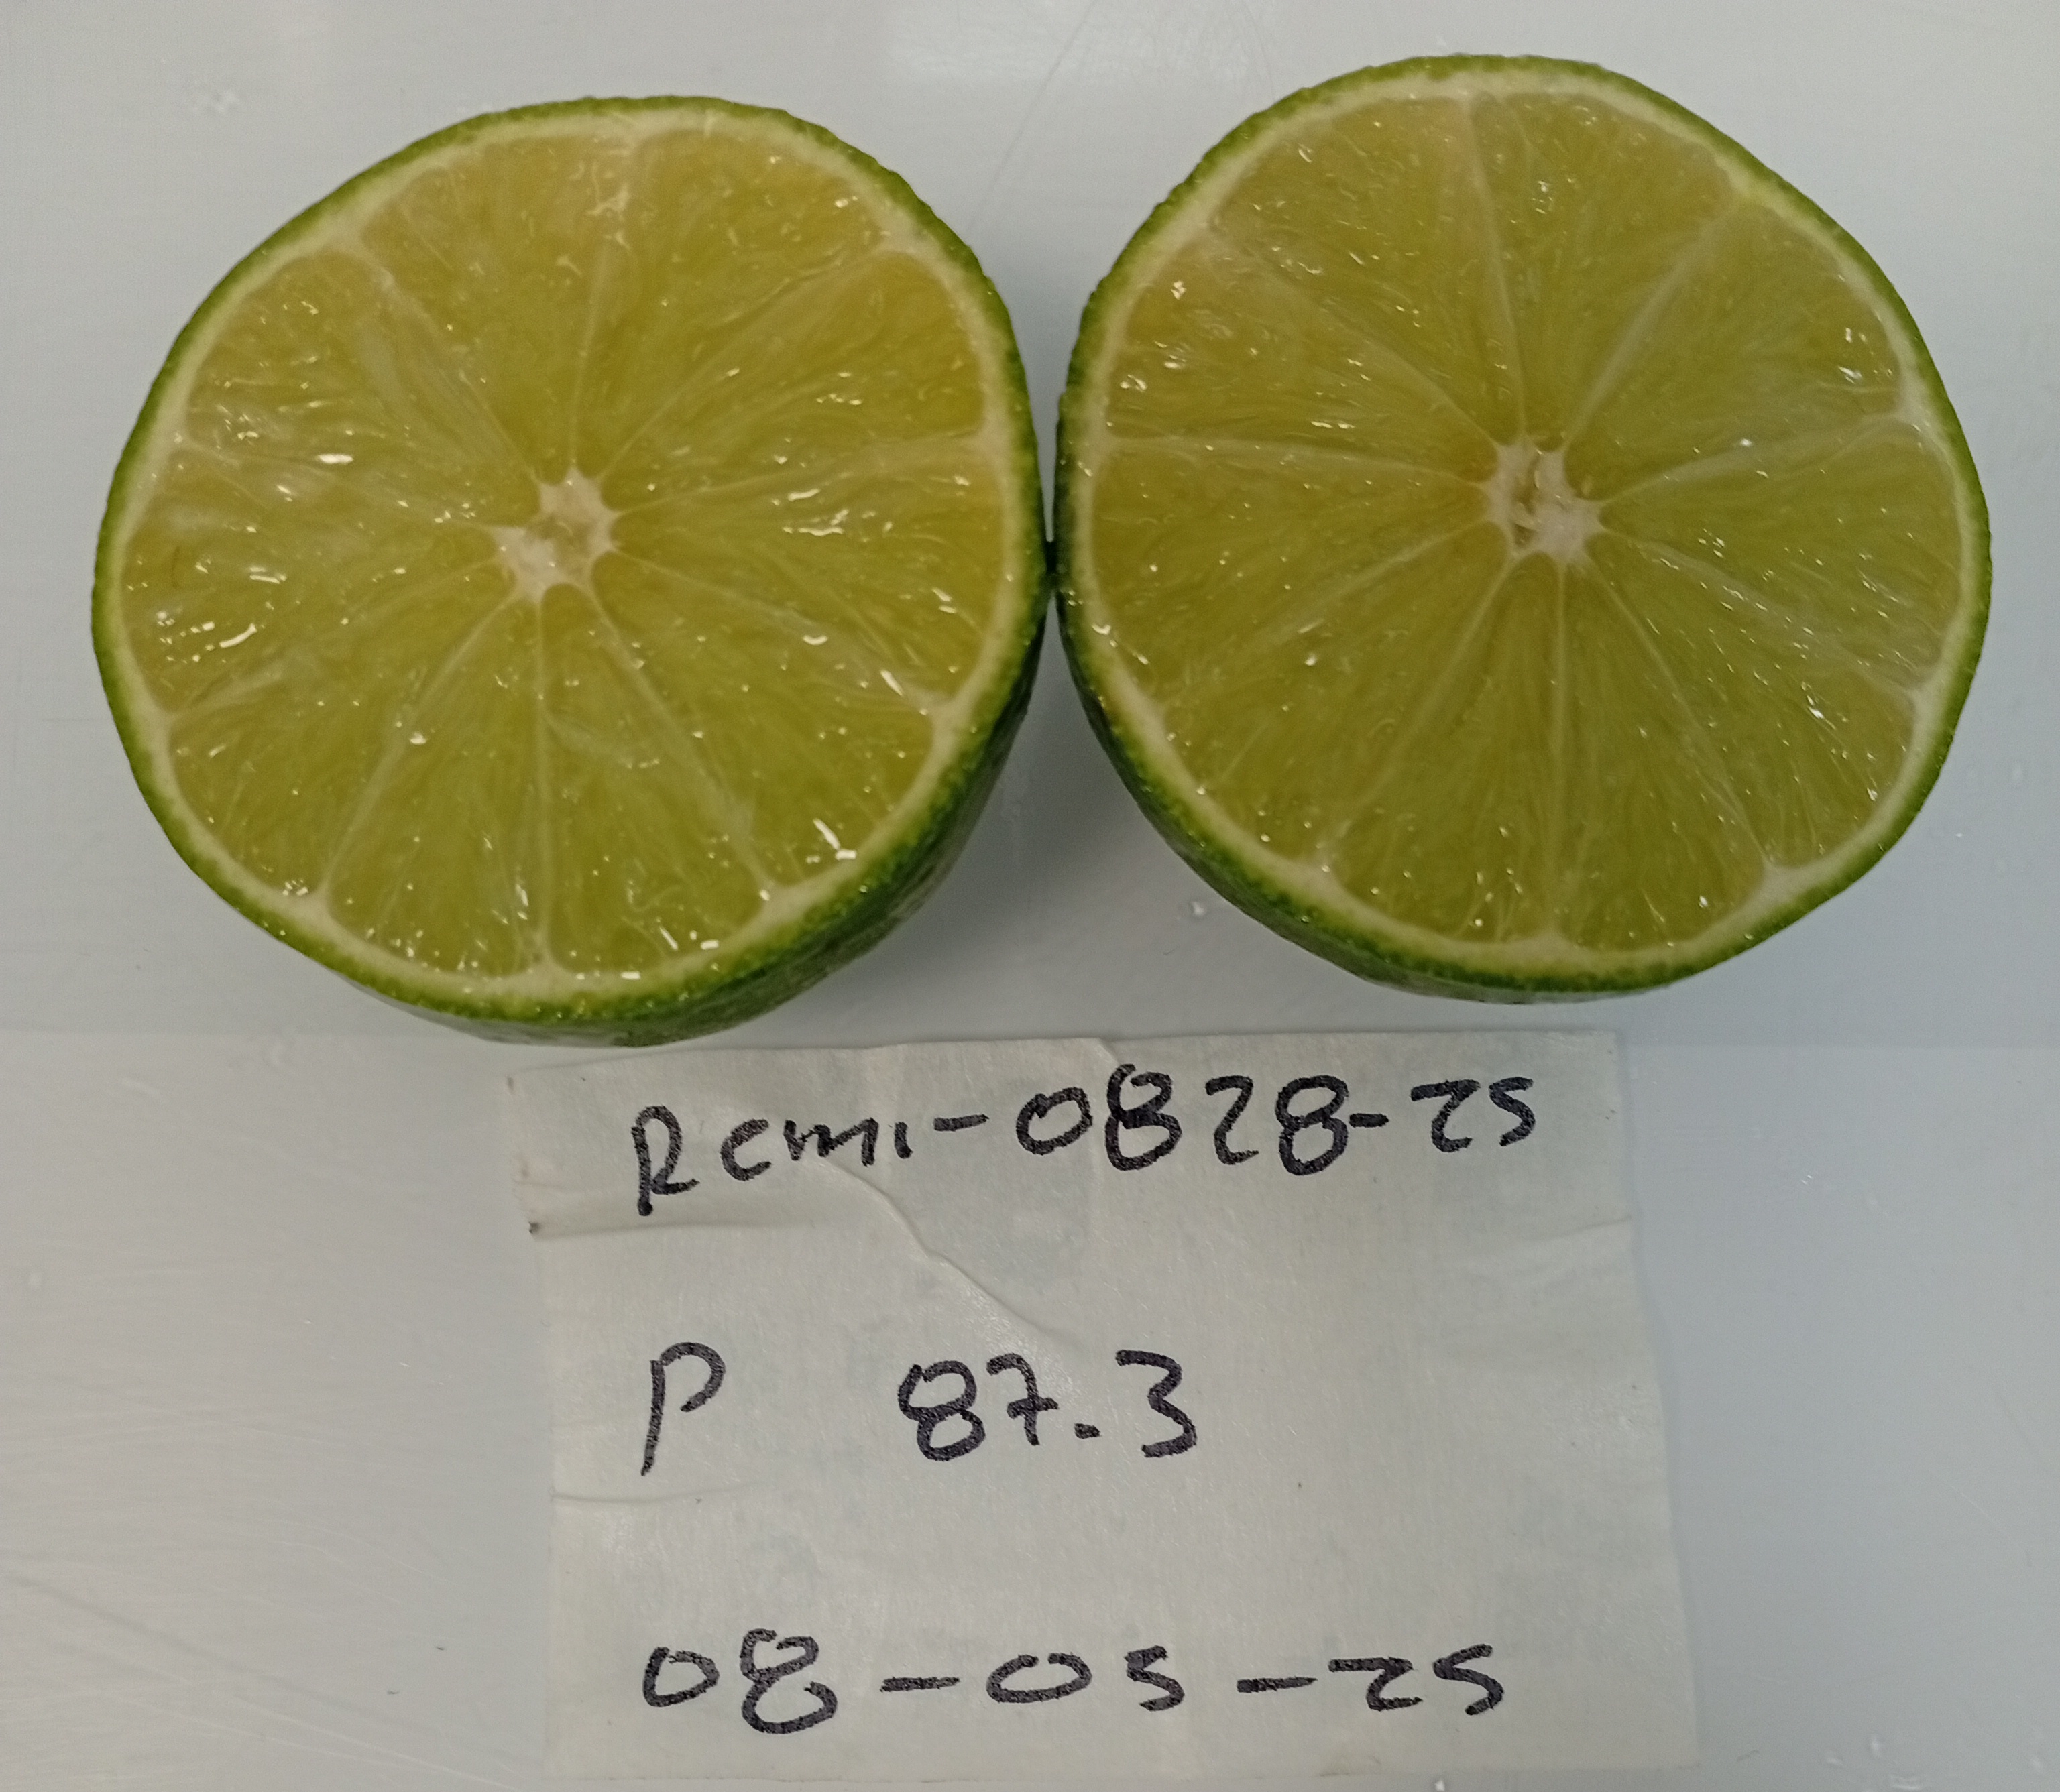 Remi-0828-25
P 87.3
08-05-25